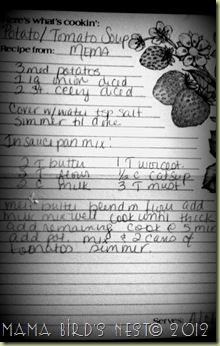 Here's what's cookin':
Potato/Tomato Soup
Recipe from: MEMA
3 med potatos
1 lg onion diced
2 st celery diced
Cover w/water tsp salt
Simmer til done
In sauce pan mix:
2 T butter 1 T worcest.
3 T flour 1/2 c catsup
2 c milk 3 T must
melt butter blend in flour add
milk mix well cook until thick
add remaining cook @ 5 min
add pot. mix & 2 cans of
tomatos simmer.
Serves:
MAMA BIRD'S NEST© 2012